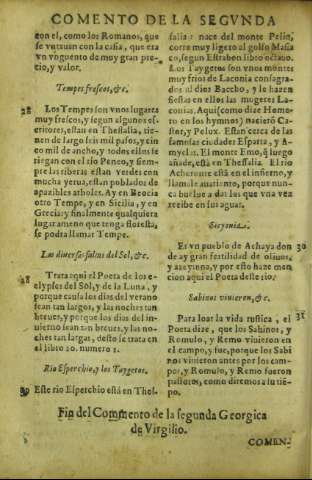 COMENTO DE LA SEGVNDA
con el, como los Romanos, que
se vntauan con la casia, que era
vn vnguento de muy gran pre-
cio, y valor.
Tempes frescos, &c.
28 Los Tempes son vnos lugares
muy frescos, y segun algunos es-
critores, estan en Thessalia, tie-
nen de largo seis mil pasos, y cin
co mil de ancho, y todos ellos se
riegan con el rio Peneo, y siem-
pre las riberas estan verdes con
mucha yerua, estan poblados de
apazibles arboles. Ay en Beocia
otro Tempe, y en Sicilia, y en
Grecia: y finalmente qualquiera
lugar ameno que tenga floresta,
se podra llamar Tempe.
Las diuersas salus del Sol, &c.
28 Trata aqui el Poeta de los e-
clypses del Sol, y de la Luna, y
porque causa los dias del verano
sean tan largos, y las noches tan
breues, y porque los dias del in-
uierno sean tan breues, y las no-
ches tan largas, desto se trata en
el libro 20. numero 2.
Rio Esperchio, y los Taygetos.
Este rio Esperchio está en Thes-
salia: nace del monte Pelio,
corre muy ligero al golfo Masia
co, segun Estraben libro octauo.
Los Taygetos son vnos montes
muy frios de Laconia consagra-
dos al dios Baccho, y le hazen
fiestas en ellos las mugeres La-
conias. Aqui (como dize Home-
ro en los hymnos) nacieró Ca-
stor, y Pelux. Estan cerca de las
famosas ciudades Esparta, y A-
myclas. El monte Emo, q̃ luego
añade, està en Thessalia. El rio
Acheronte està en el infierno, y
llamale auariento, porque nun-
ca buelue a dar los que vna vez
recibe en sus aguas.
Sicyonia.
Es vn pueblo de Achaya don 30
de ay gran fertilidad de oliuos,
y azeytuno, y por esto haze men
cion aqui el Poeta deste rio.
Sabinos vinieron, &c.
Para loar la vida rustica, el 31
Poeta dize, que los Sabinos, y
Romulo, y Remo vinieron en
el campo, y fue, porque los Sabi
nos vinieron antes por los cam-
pos, y Romulo, y Remo fueron
pastores, como diremos a su tie-
po.
Fin del Commento de la segunda Georgica
de Virgilio.
COMEN-